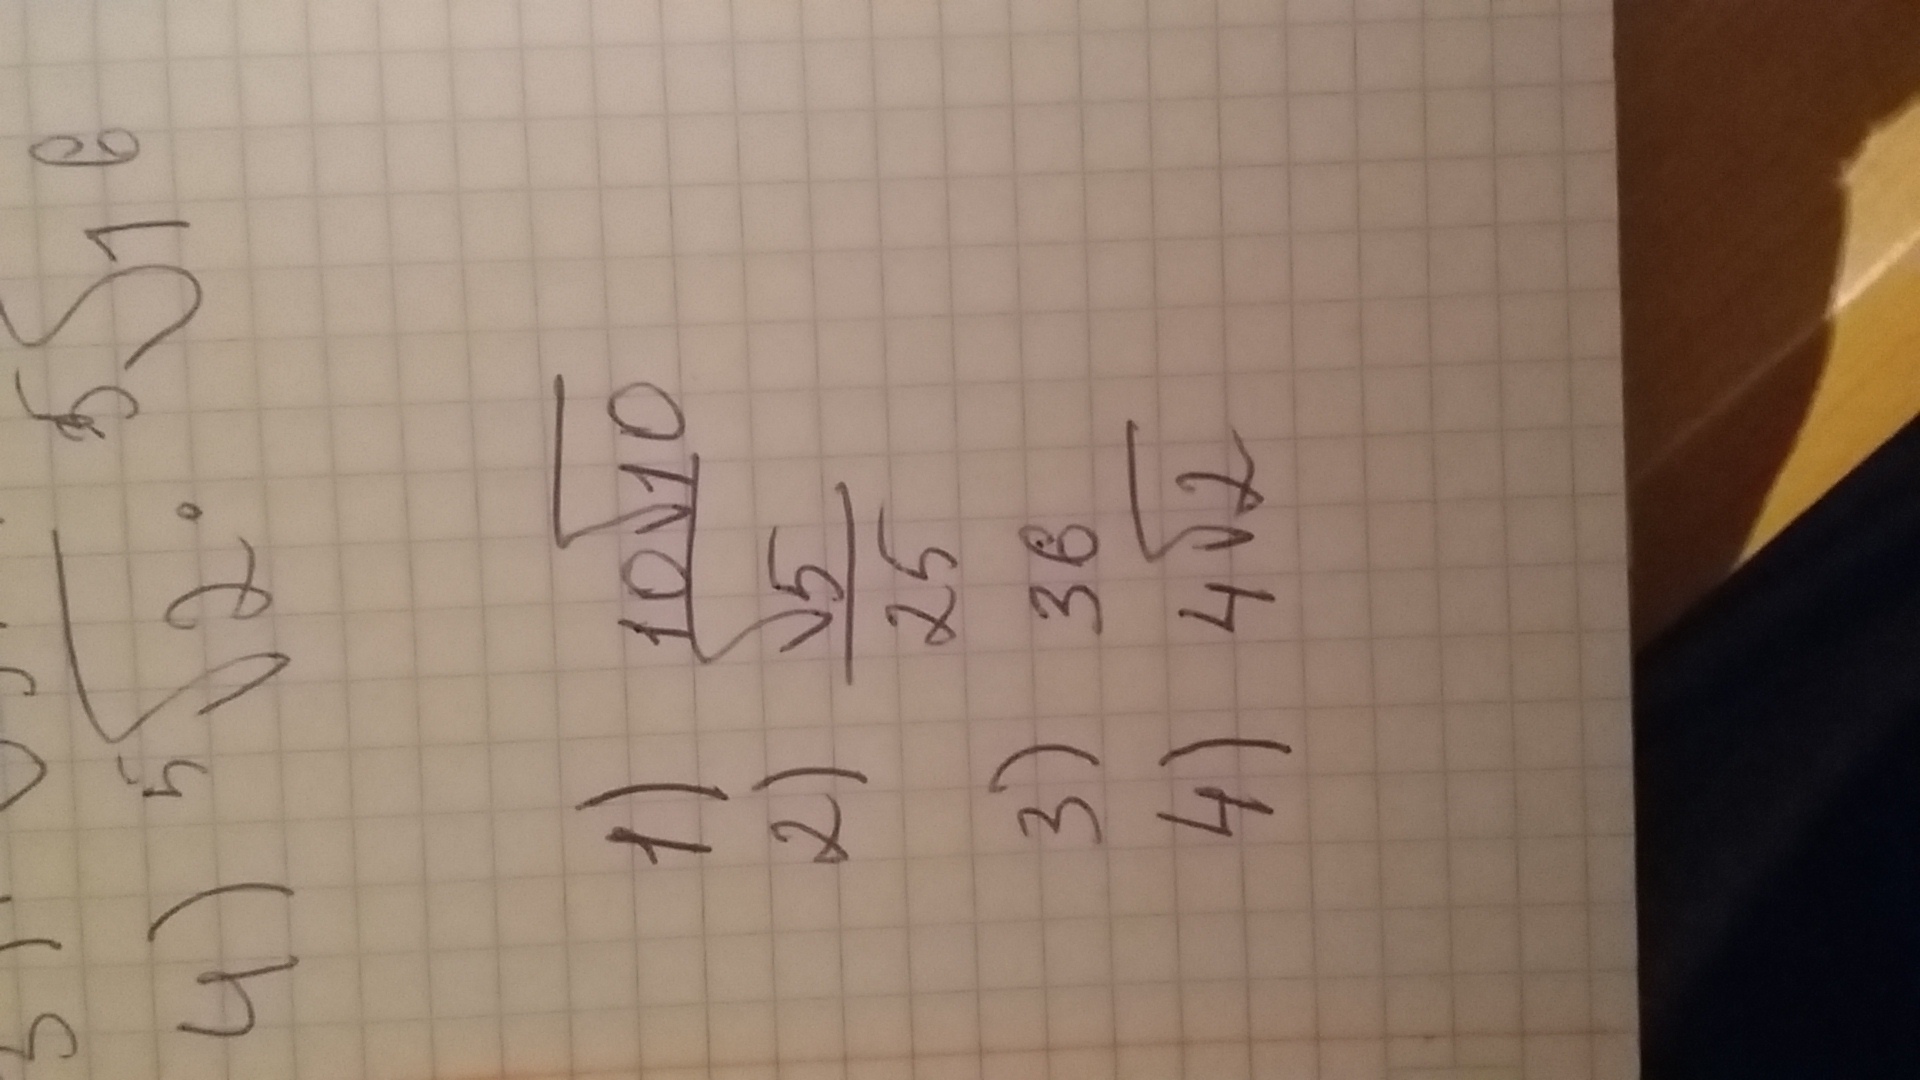 4) ⁵√2 · ⁵√16
1) 10√10
2) √5/25
3) 36
4) 4√2